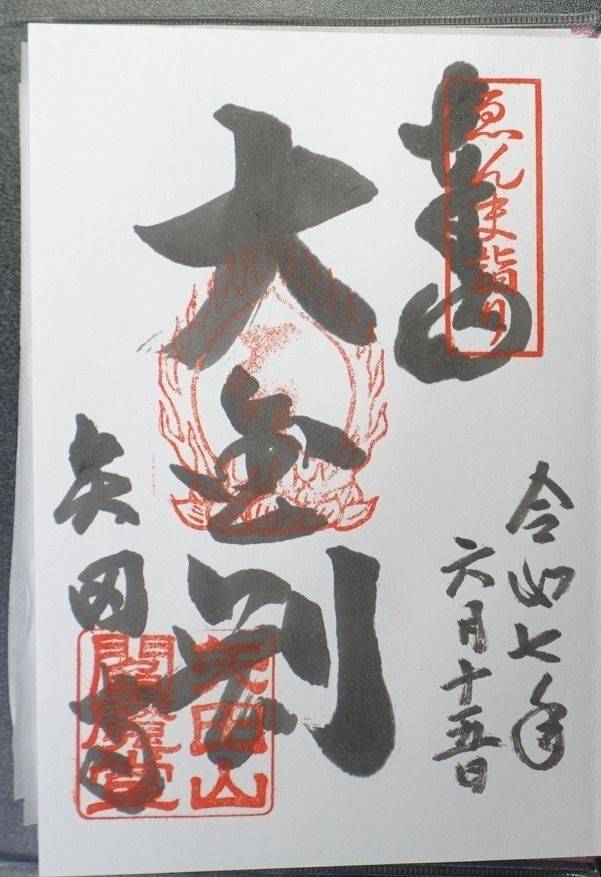 ゑんま詣り
令和七年
六月十五日
大金剛
矢田寺
矢田山
閻魔堂